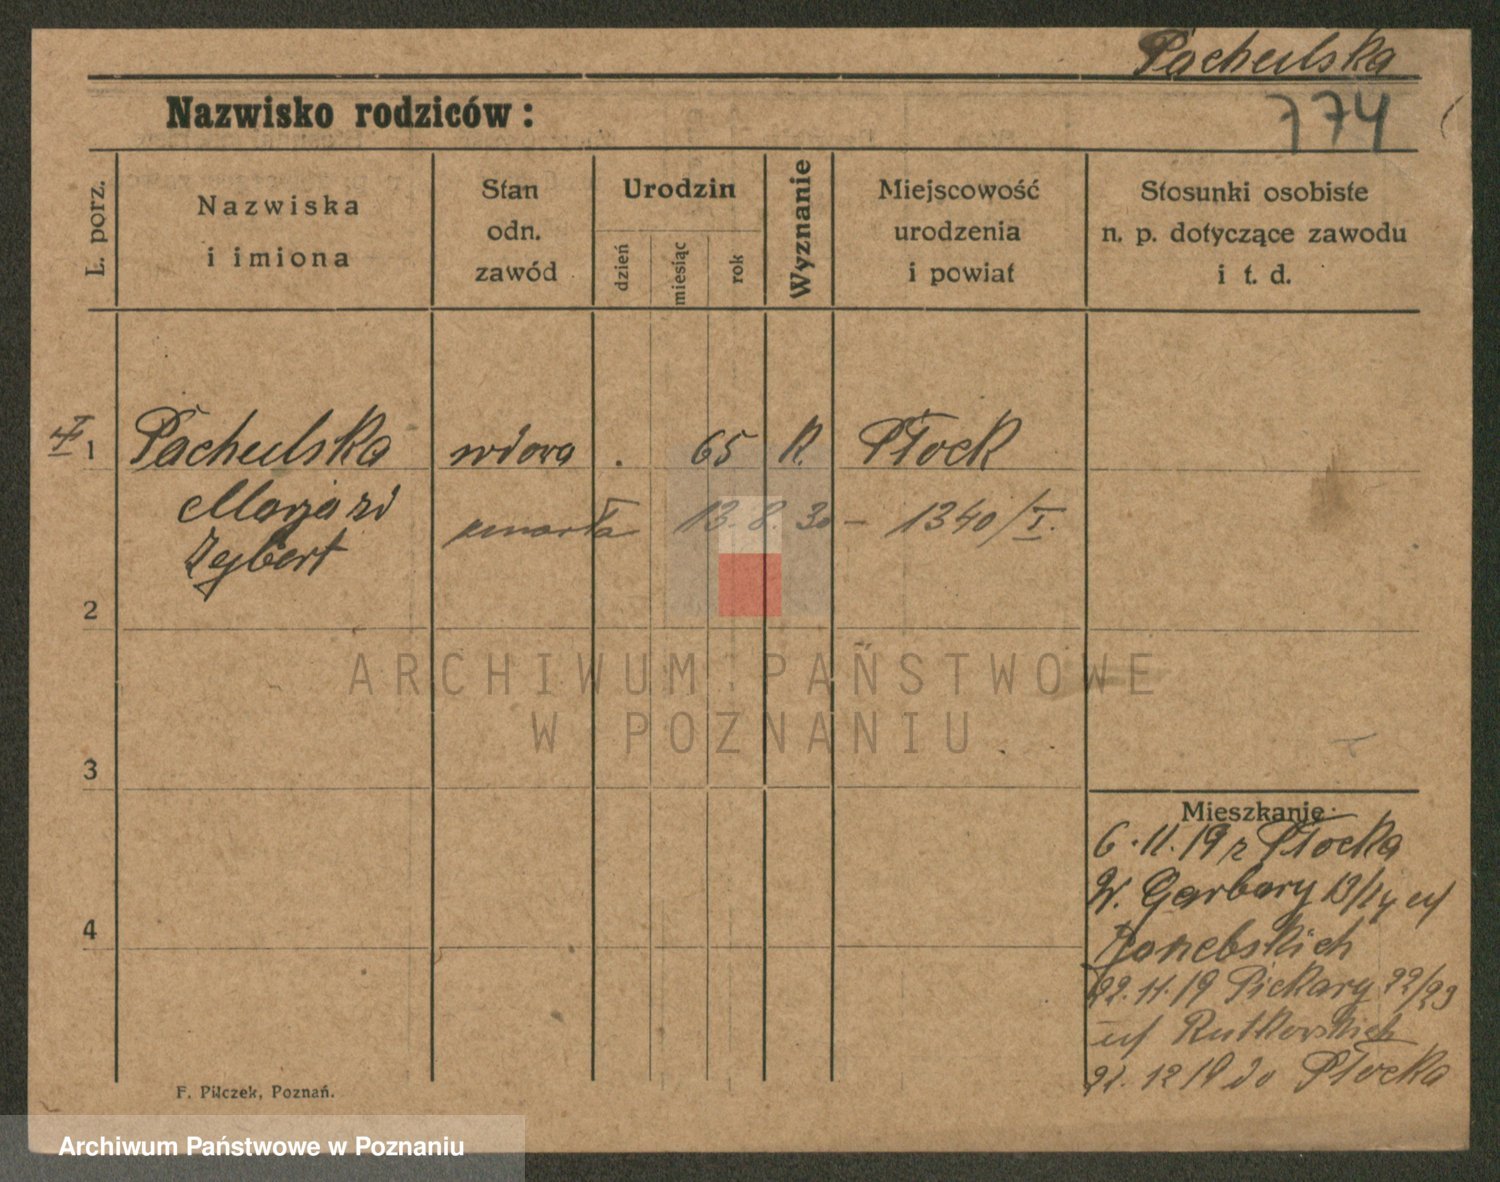 Pachulska
774
Nazwisko rodziców :
L. porz.
Nazwiska
i imiona
Stan
odn.
zawód
Urodzin
dzień
miesiąc
rok
Wyznanie
Miejscowość
urodzenia
i powiat
Stosunki osobiste
n. p. dotyczące zawodu
i t. d.
1 Pachulska wdowa . 65 R. Płock
Marja zd
Zejbert
zmarła 13. 8. 30 – 1340/I.
2
3
4
ARCHIWUM PAŃSTWOWE
W POZNANIU
Mieszkanie:
6.11.19 z Płocka
W. Garbary 13/14 u/
22.11.19 Piekary 22/23
u/ Rutkowskich
12 19 do Płocka
F. Pilczek, Poznań.
Archiwum Państwowe w Poznaniu